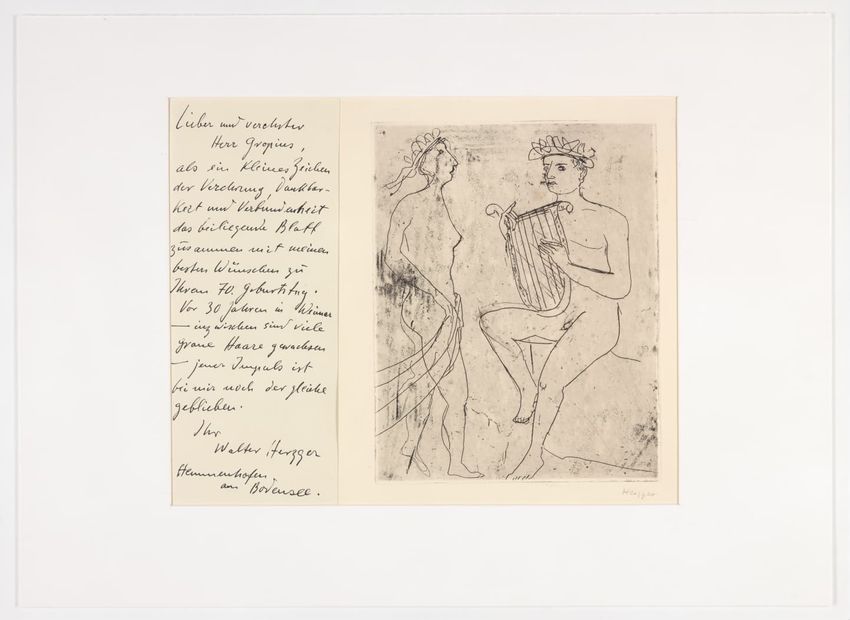 Lieber und verehrter
Herr Gropius,
als ein kleines Zeichen
der Verehrung, Dankbar-
keit und Verbundenheit
das beiliegende Blatt
zusammen mit meinen
besten Wünschen zu
Ihrem 70. Geburtstag.
Vor 30 Jahren in Weimar
— inzwischen sind viele
graue Haare gewachsen
— jener Impuls ist
bei mir noch der gleiche
geblieben.
Ihr
Walter Herzger
Hemmenhofen
am Bodensee.
Herzger